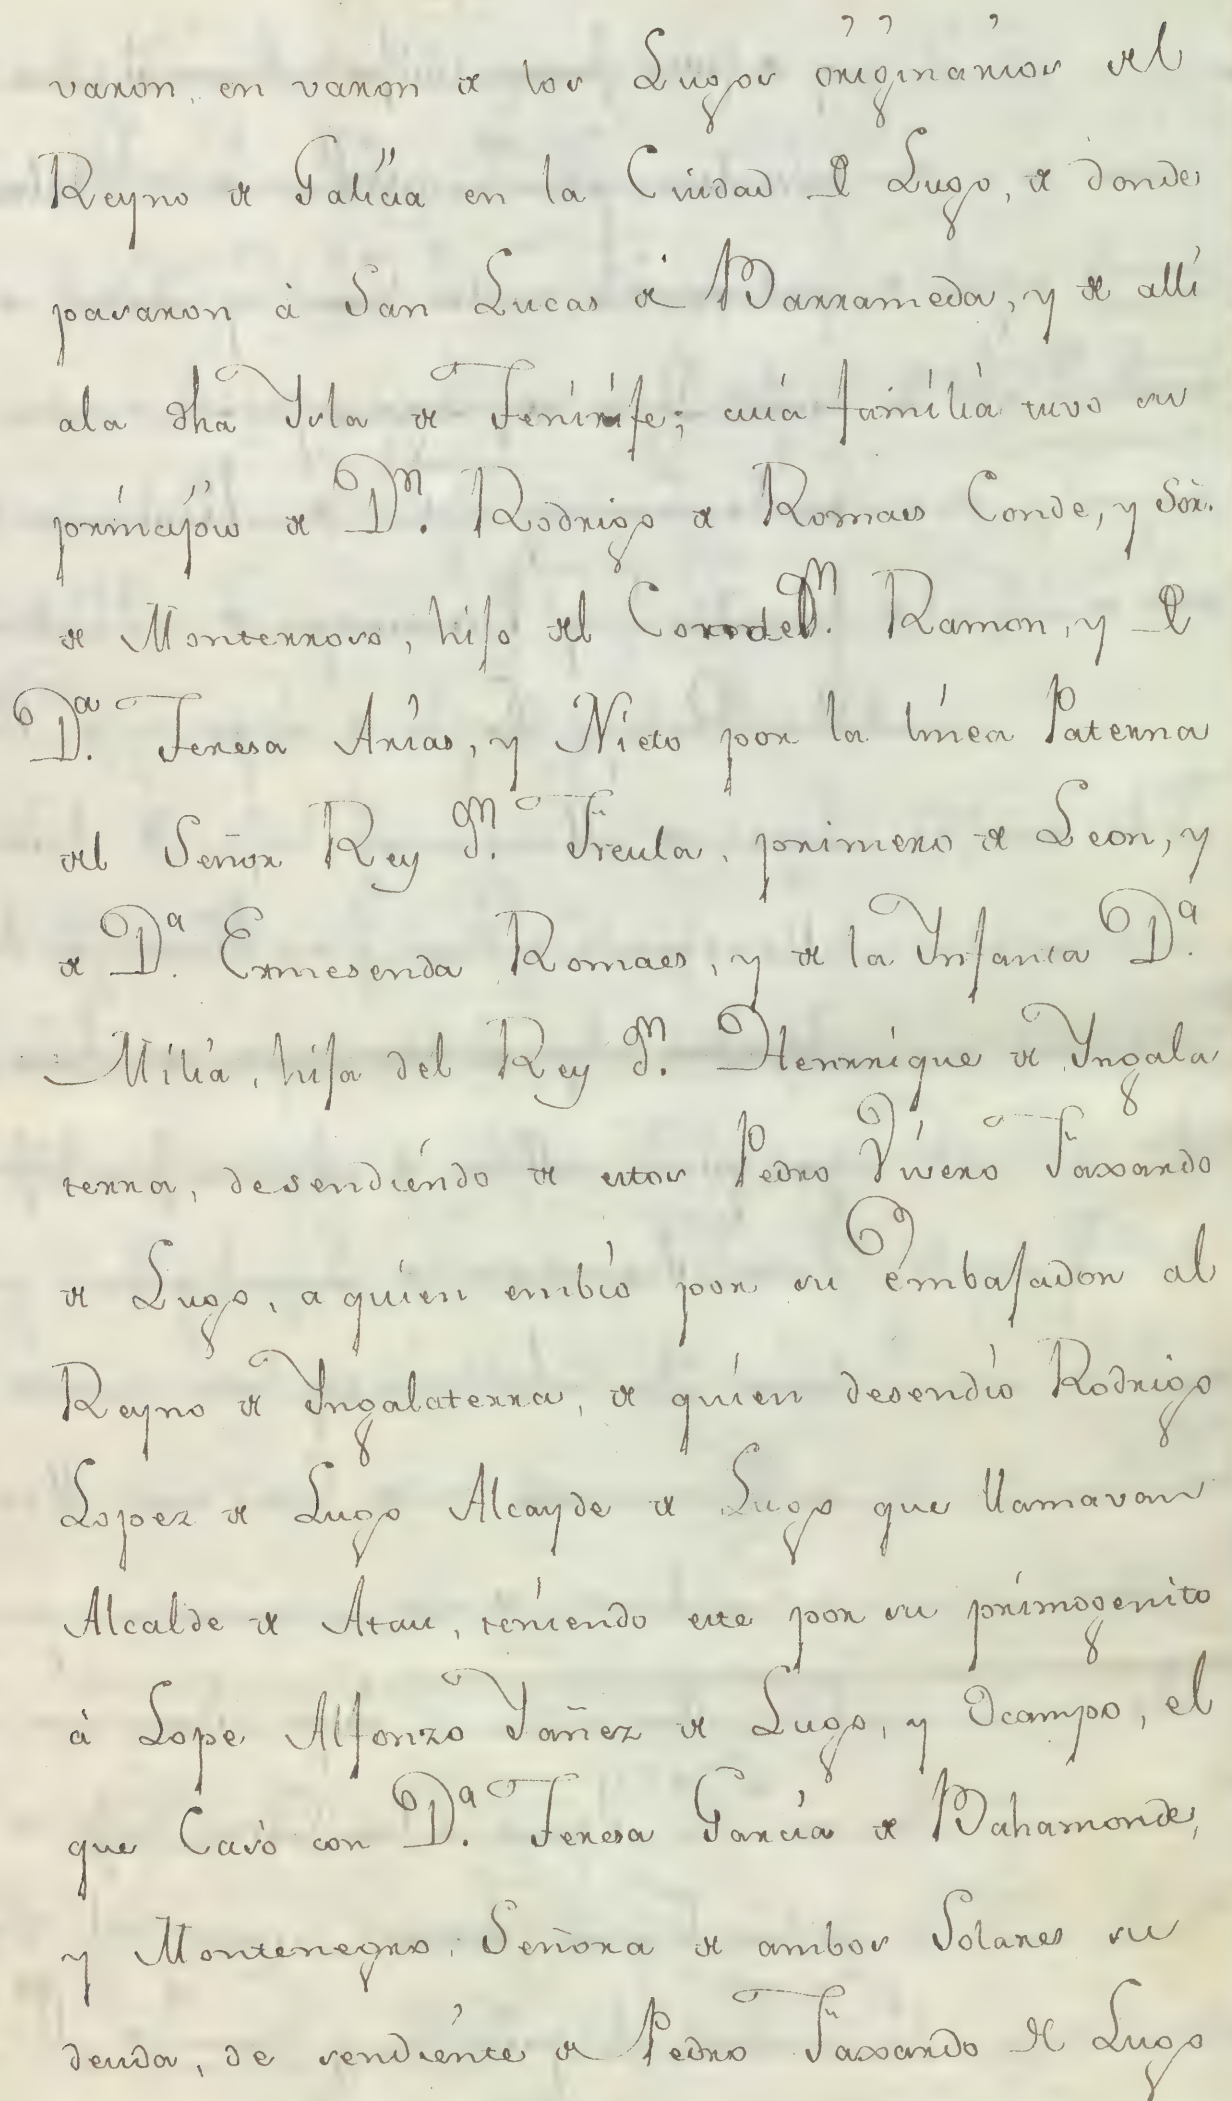 varon, en varon de los Lugos originarios del
Reyno de Galicia en la Ciudad de Lugo, de donde
pasaron à San Lucas de Barrameda, y de alli
ala dha Ysla de Teneriffe; cuia familia tuvo su
principio de Dn. Rodrigo de Romaes Conde, y Sòr.
de Monterroso, hijo del Conde Dn. Ramon, y de
Da. Teresa Arias, y Nieto por la linea Paterna
del Señor Rey Dn. Freula, primero de Leon, y
de Da. Ermesenda Romaes, y de la Infanta Da.
Milia, hija del Rey Dn. Henrrique de Yngala
terra, desendiendo de estos Pedro Vivero Taxardo
de Lugo, a quien embió por su embajador al
Reyno de Yngalaterra, de quien desendio Rodrigo
Lopez de Lugo Alcayde de Lugo que llamavan
Alcalde de Atau, teniendo este por su primogenito
à Lope Alfonzo Yañez de Lugo, y Ocampo, el
que Casò con Da. Teresa Garcia de Bahamonde,
y Montenegro, Señora de ambos Solares su
deuda, de sendiente de Pedro Taxardo de Lugo